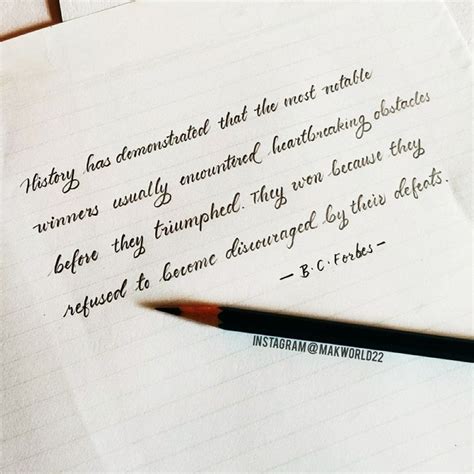 History has demonstrated that the most notable
winners usually encountered heartbreaking obstacles
before they triumphed. They won because they
refused to become discouraged by their defeats.
— B.C. Forbes —
INSTAGRAM@MAKWORLD22